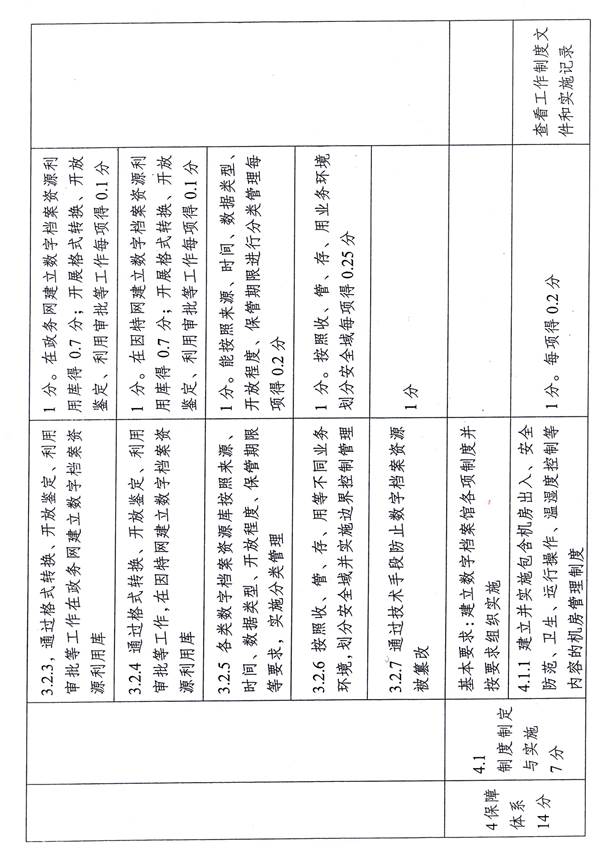 3.2.3，通过格式转换、开放鉴定、利用
审批等工作在政务网建立数字档案资
源利用库
1 分。在政务网建立数字档案资源利
用库得 0.7 分；开展格式转换、开放
鉴定、利用审批等工作每项得 0.1 分
3.2.4 通过格式转换、开放鉴定、利用
审批等工作，在因特网建立数字档案资
源利用库
1 分。在因特网建立数字档案资源利
用库得 0.7 分；开展格式转换、开放
鉴定、利用审批等工作每项得 0.1 分
3.2.5 各类数字档案资源库按照来源、
时间、数据类型、开放程度、保管期限
等要求，实施分类管理
1 分。能按照来源、时间、数据类型、
开放程度、保管期限进行分类管理每
项得 0.2 分
3.2.6 按照收、管、存、用等不同业务
环境，划分安全域并实施边界控制管理
1 分。按照收、管、存、用业务环境
划分安全域每项得 0.25 分
3.2.7 通过技术手段防止数字档案资源
被篡改
1 分
4 保障
体系
14 分
4.1
制度制定
与实施
7 分
基本要求：建立数字档案馆各项制度并
按要求组织实施
4.1.1 建立并实施包含机房出入、安全
防范、卫生、运行操作、温湿度控制等
内容的机房管理制度
1 分。每项得 0.2 分
查看工作制度文
件和实施记录